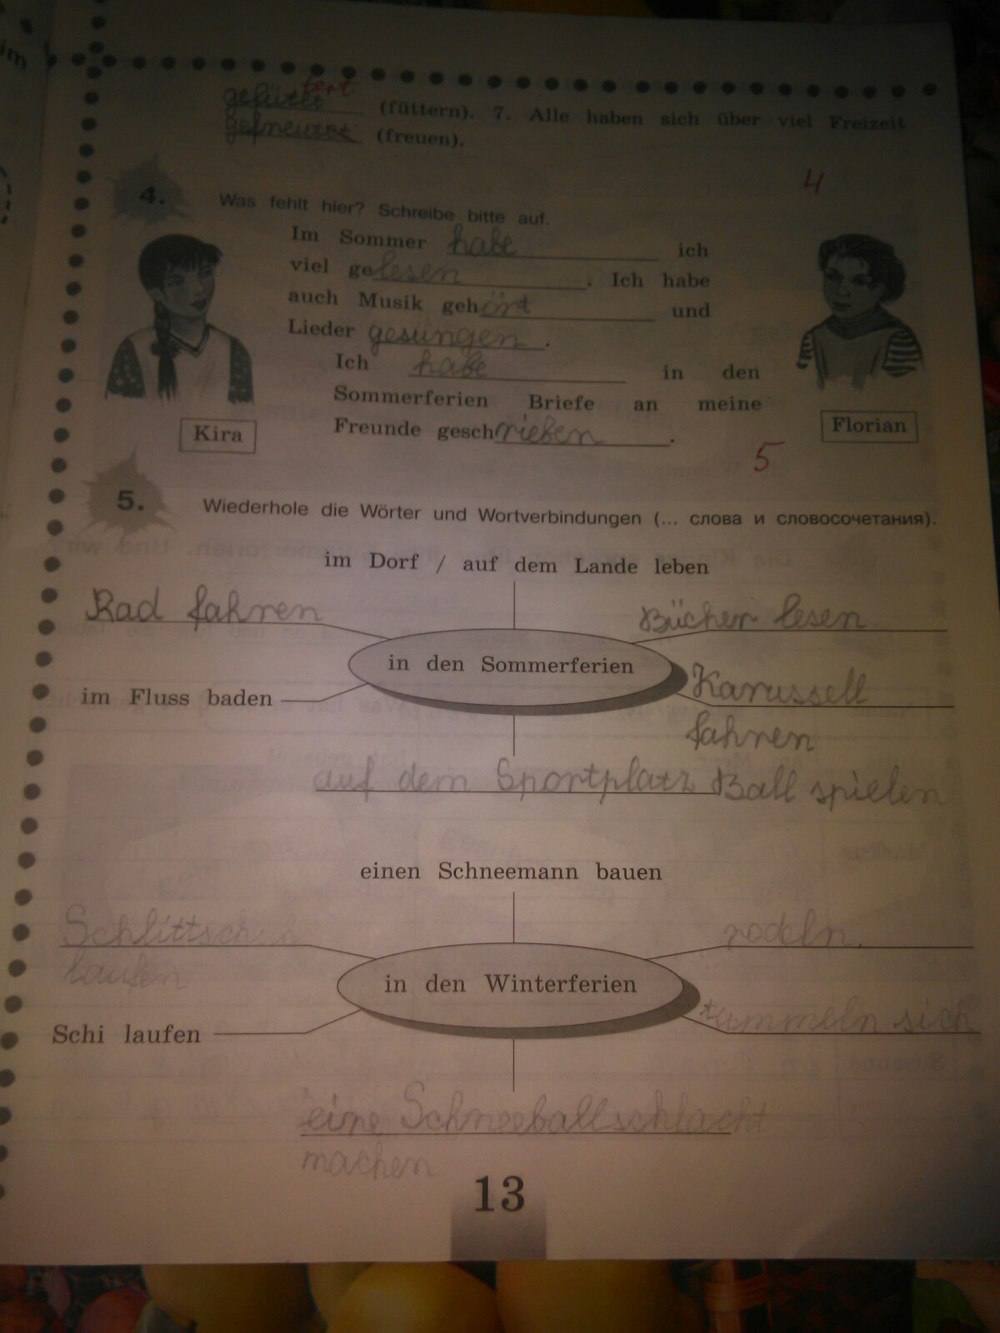 tert
(füttern). 7. Alle haben sich über viel Freizeit
(freuen).
4
4. Was fehlt hier? Schreibe bitte auf.
Im Sommer habe ich
viel gelesen. Ich habe
auch Musik gehört und
Lieder gesungen.
Ich habe in den
Sommerferien Briefe an meine
Freunde geschrieben.
Kira
Florian
5
5. Wiederhole die Wörter und Wortverbindungen (... слова и словосочетания).
im Dorf / auf dem Lande leben
Rad fahren
Bücher lesen
in den Sommerferien
im Fluss baden
Karussell
fahren
auf dem Sportplatz Ball spielen
einen Schneemann bauen
laufen
rodeln
in den Winterferien
Schi laufen
tummeln sich
eine Schneeballschlacht
machen
13